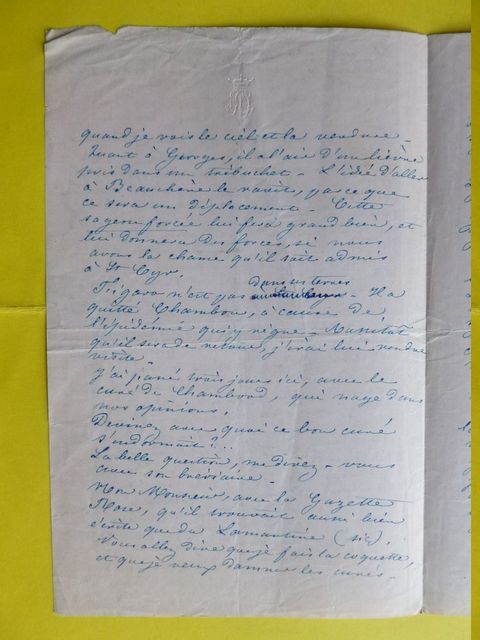 quand je vois le ciel et la verdure -
Quant à Georges, il a l'air d'un lièvre
pris dans un trébuchet - L'idée d'aller
à Beauchêne le ravit, parce que
ce sera un déplacement - Cette
sagesse forcée lui fera grand bien, et
lui donnera des forces, si nous
avons la chance qu'il soit admis
à St Cyr.
dans ses terres
Figaro n'est pas - Il a
quitté Chambord, à cause de
l'épidémie qui y règne - Aussitôt
qu'il sera de retour, j'irai lui rendre
visite -
J'ai passé trois jours ici, avec le
curé de Chambord, qui nage dans
nos opinions.
Devinez avec quoi ce bon curé
s'endormait?...
La belle question, me direz-vous
avec son bréviaire -
Non Monsieur, avec la Gazette
Rose, qu'il trouvait aussi bien
écrite que du Lamartine (sic).
Vous allez dire que je fais la coquette,
et que je veux damner les curés -